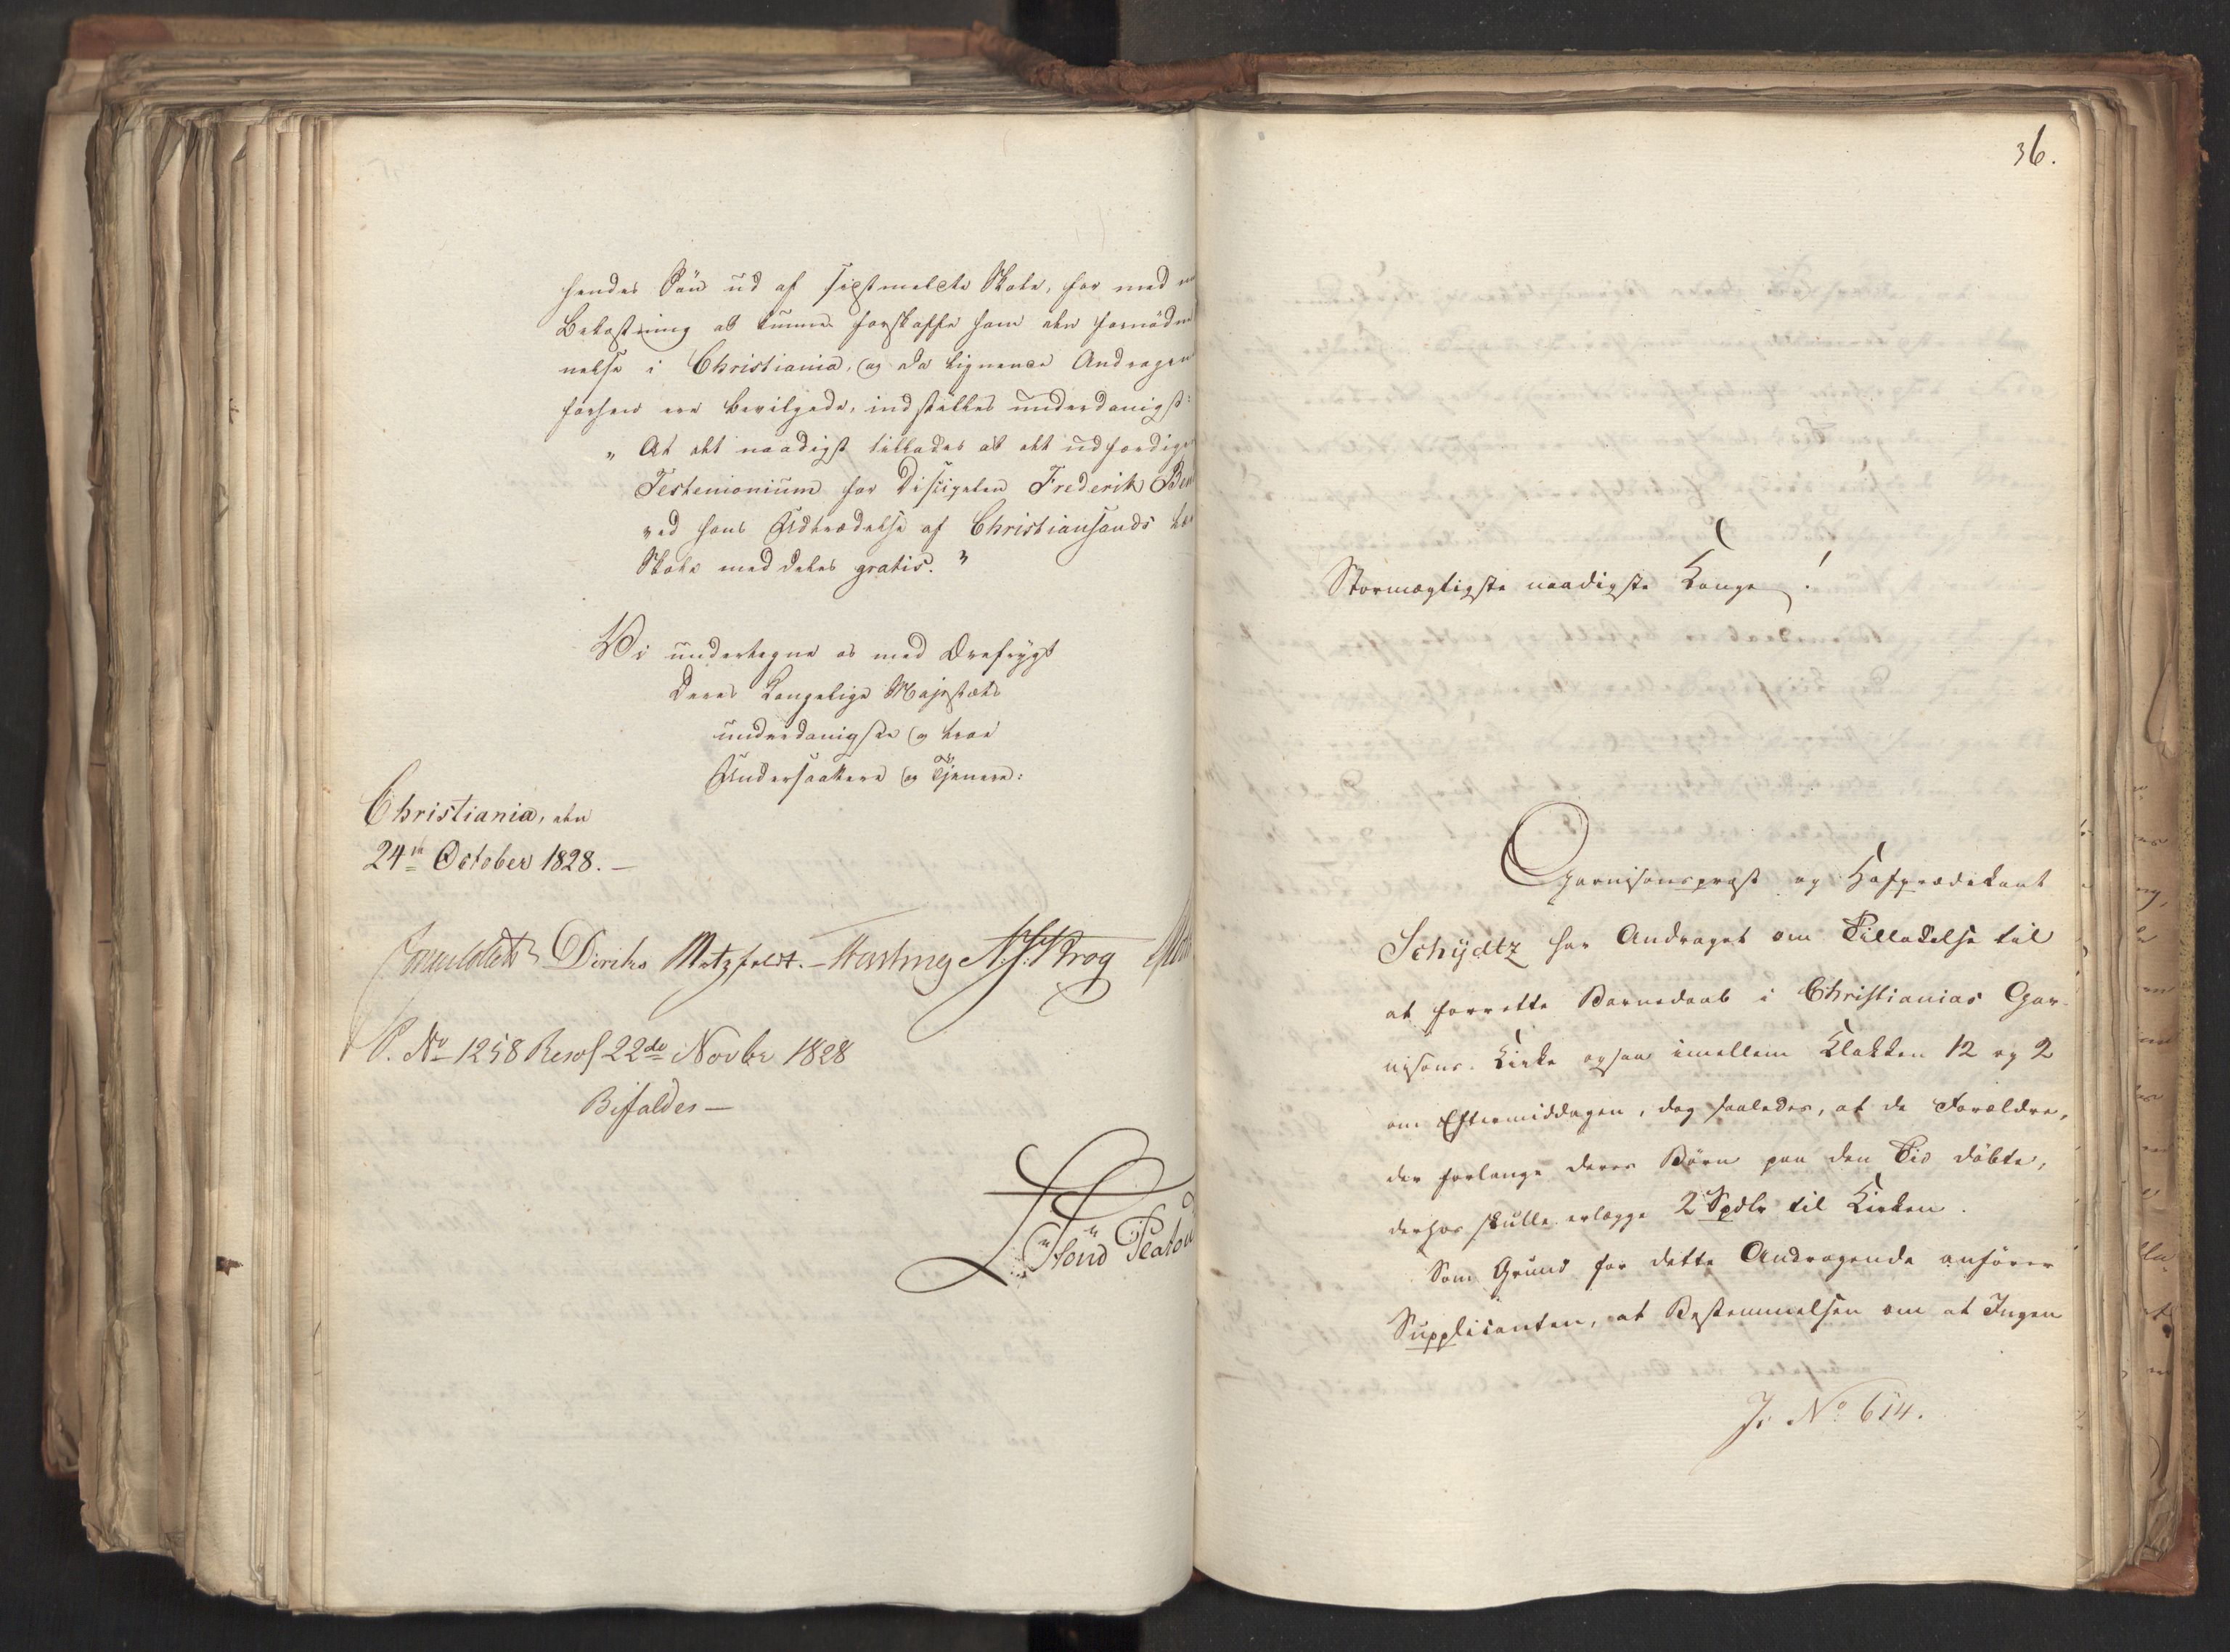 hendes Søn ud af sidstmeldte Skole, for med
Bekostning at kunne forskaffe ham den fornødne
nelse i Christiania, og da lignende Andragen
forhen ere bevilgede, indstilles underdanigst:
„At det naadigst tillades at det udfærdige
Testemonium for Disciplen Frederik
ved hans Udtrædelse af Christiansands
Skole meddeles gratis."
Vi undertegne os med Ærefrygt
Deres Kongelige Majestæts
underdanigste og troe
Undersaatter og Tjenere:
Christiania, den
24de October 1828.—
Diriks Motzfeldt.— Fasting Krog
P. No 1258 Resol 22de Novbr 1828
Bifaldes—
36.
Stormægtigste naadigste Konge!
Garnisonspræst og Hofprædikant
Schydtz har Andraget om Tilladelse til
at forrette Barnedaab i Christianias Gar-
nisons Kirke ogsaa imellem Klokken 12 og 2
om Eftermiddagen, dog saaledes, at de Forældre,
der forlange deres Börn paa den Tid döbte,
derfor skulle erlægge 2 Spdlr til Kirken.
Som Grund for dette Andragende anförer
Supplicanten, at Bestemmelsen om at Ingen
J. No 614.